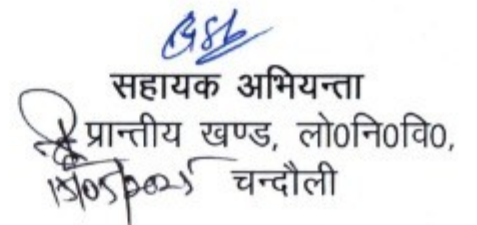 सहायक अभियन्ता
प्रान्तीय खण्ड, लो0नि0वि0,
15/05/2025 चन्दौली